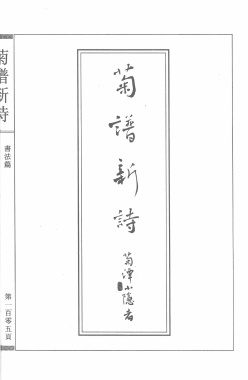 菊譜新詩
菊潭小隱者
菊譜新詩
書法篇
第一百零五頁